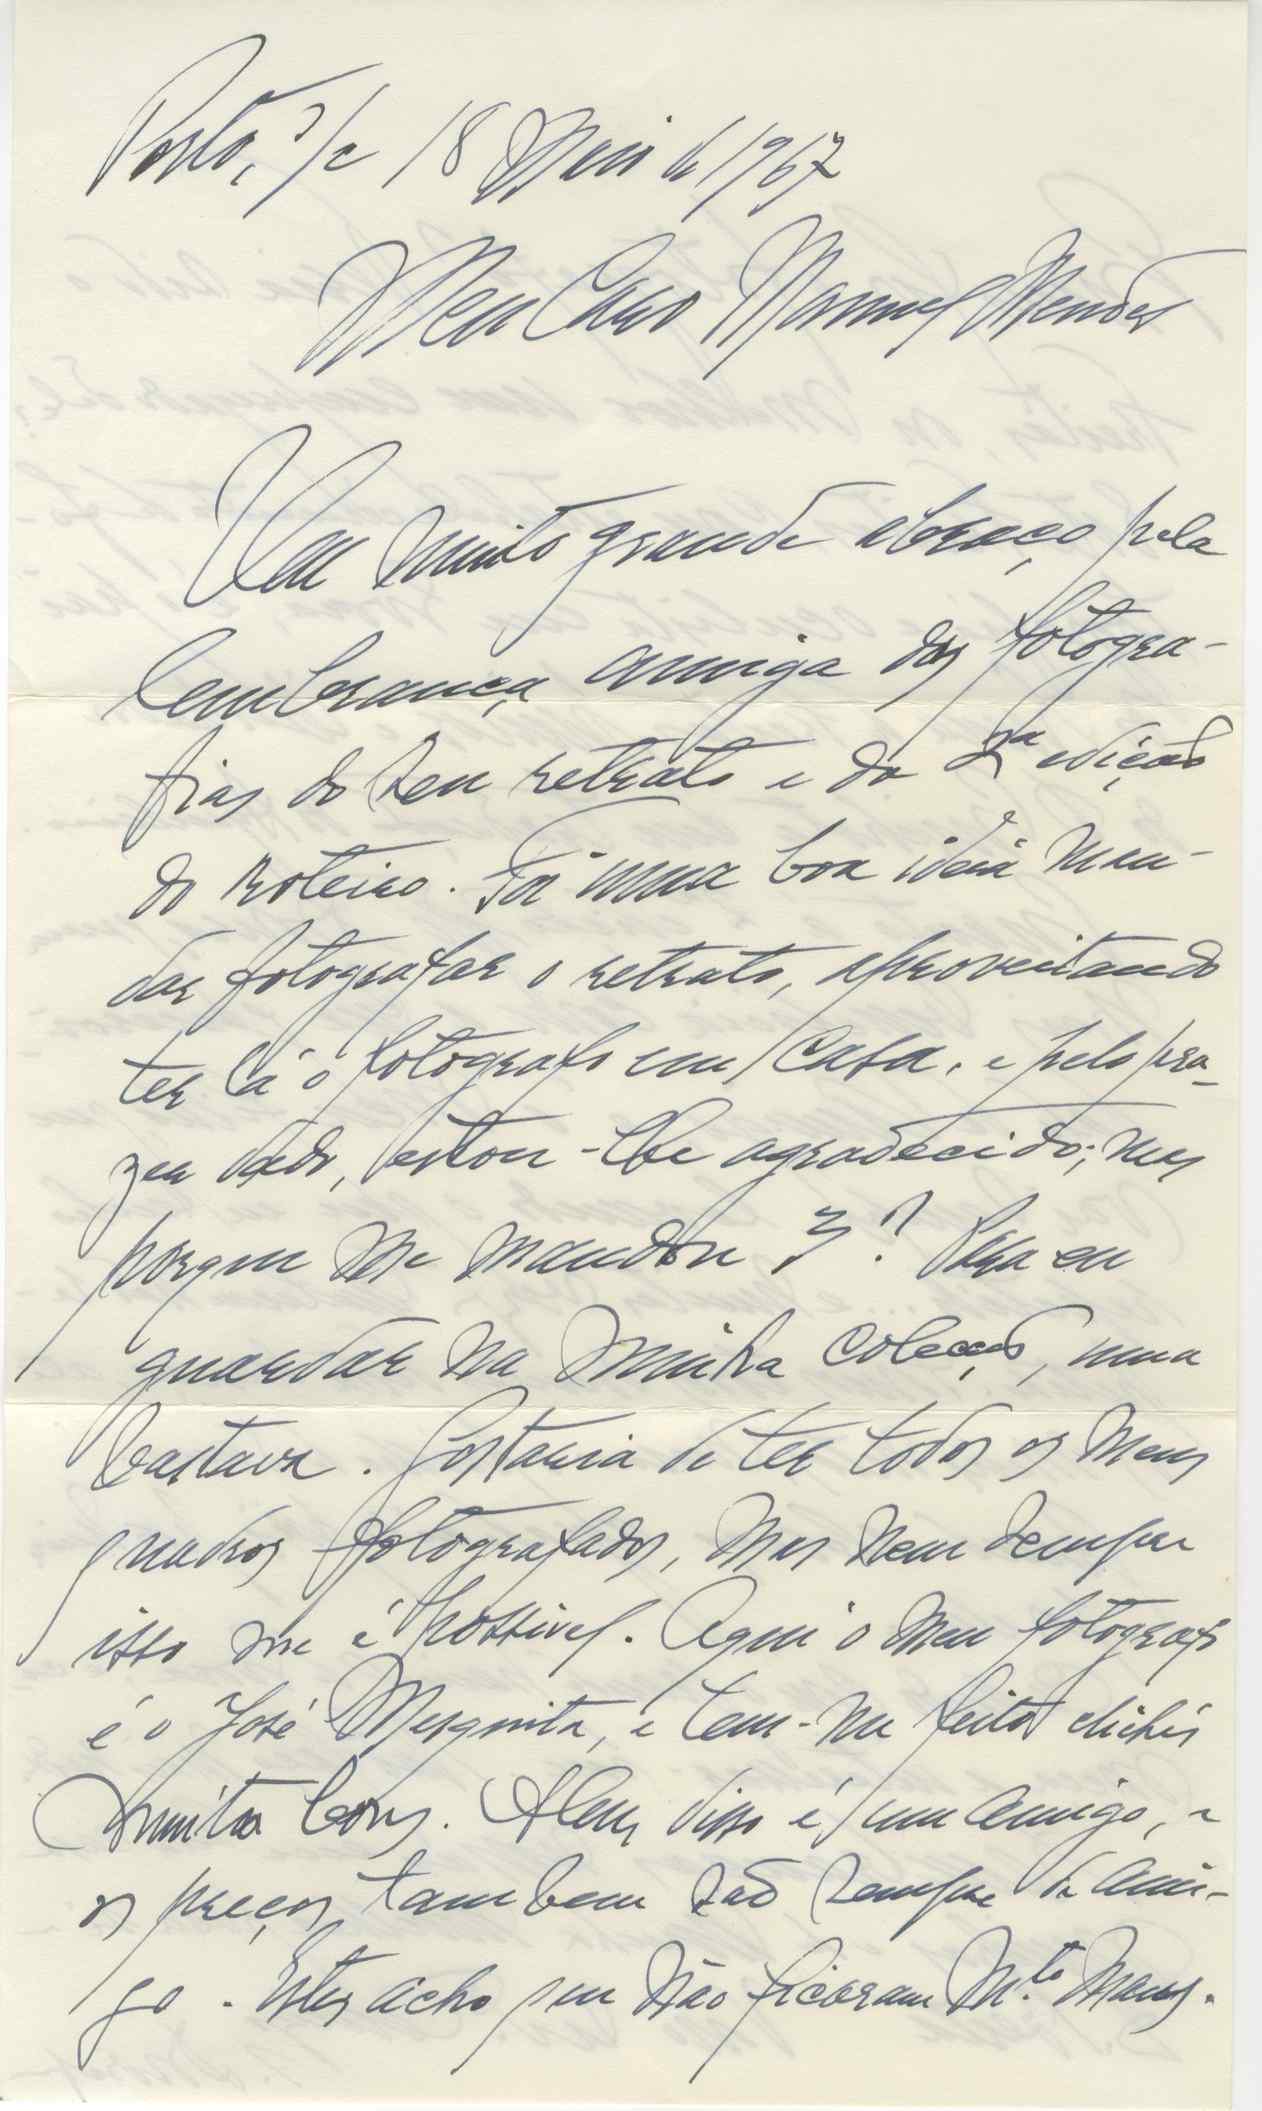 Porto, 18 Maio de 1967
Meu Caro Manuel Mendes
Um muito grande abraço pela
lembrança amiga das fotogra-
fias do seu retrato e da 2ª edição
do Roteiro. Foi uma boa ideia man-
dar fotografar o retrato, aproveitando
ter lá o fotografo em casa, e pelo pra-
zer dado, estou-lhe agradecido; mas
porque me mandou 3? Para eu
guardar na minha colecção, uma
bastava. Gostaria de ter todos os meus
quadros fotografados, mas nem sempre
isso me é possivel. Aqui o meu fotografo
é o José Mesquita, e tem-me feito clichés
muito bons. Alem disso é um amigo, e
os preços tambem são sempre de ami-
go. Estes acho que não ficaram Mtº Maus.